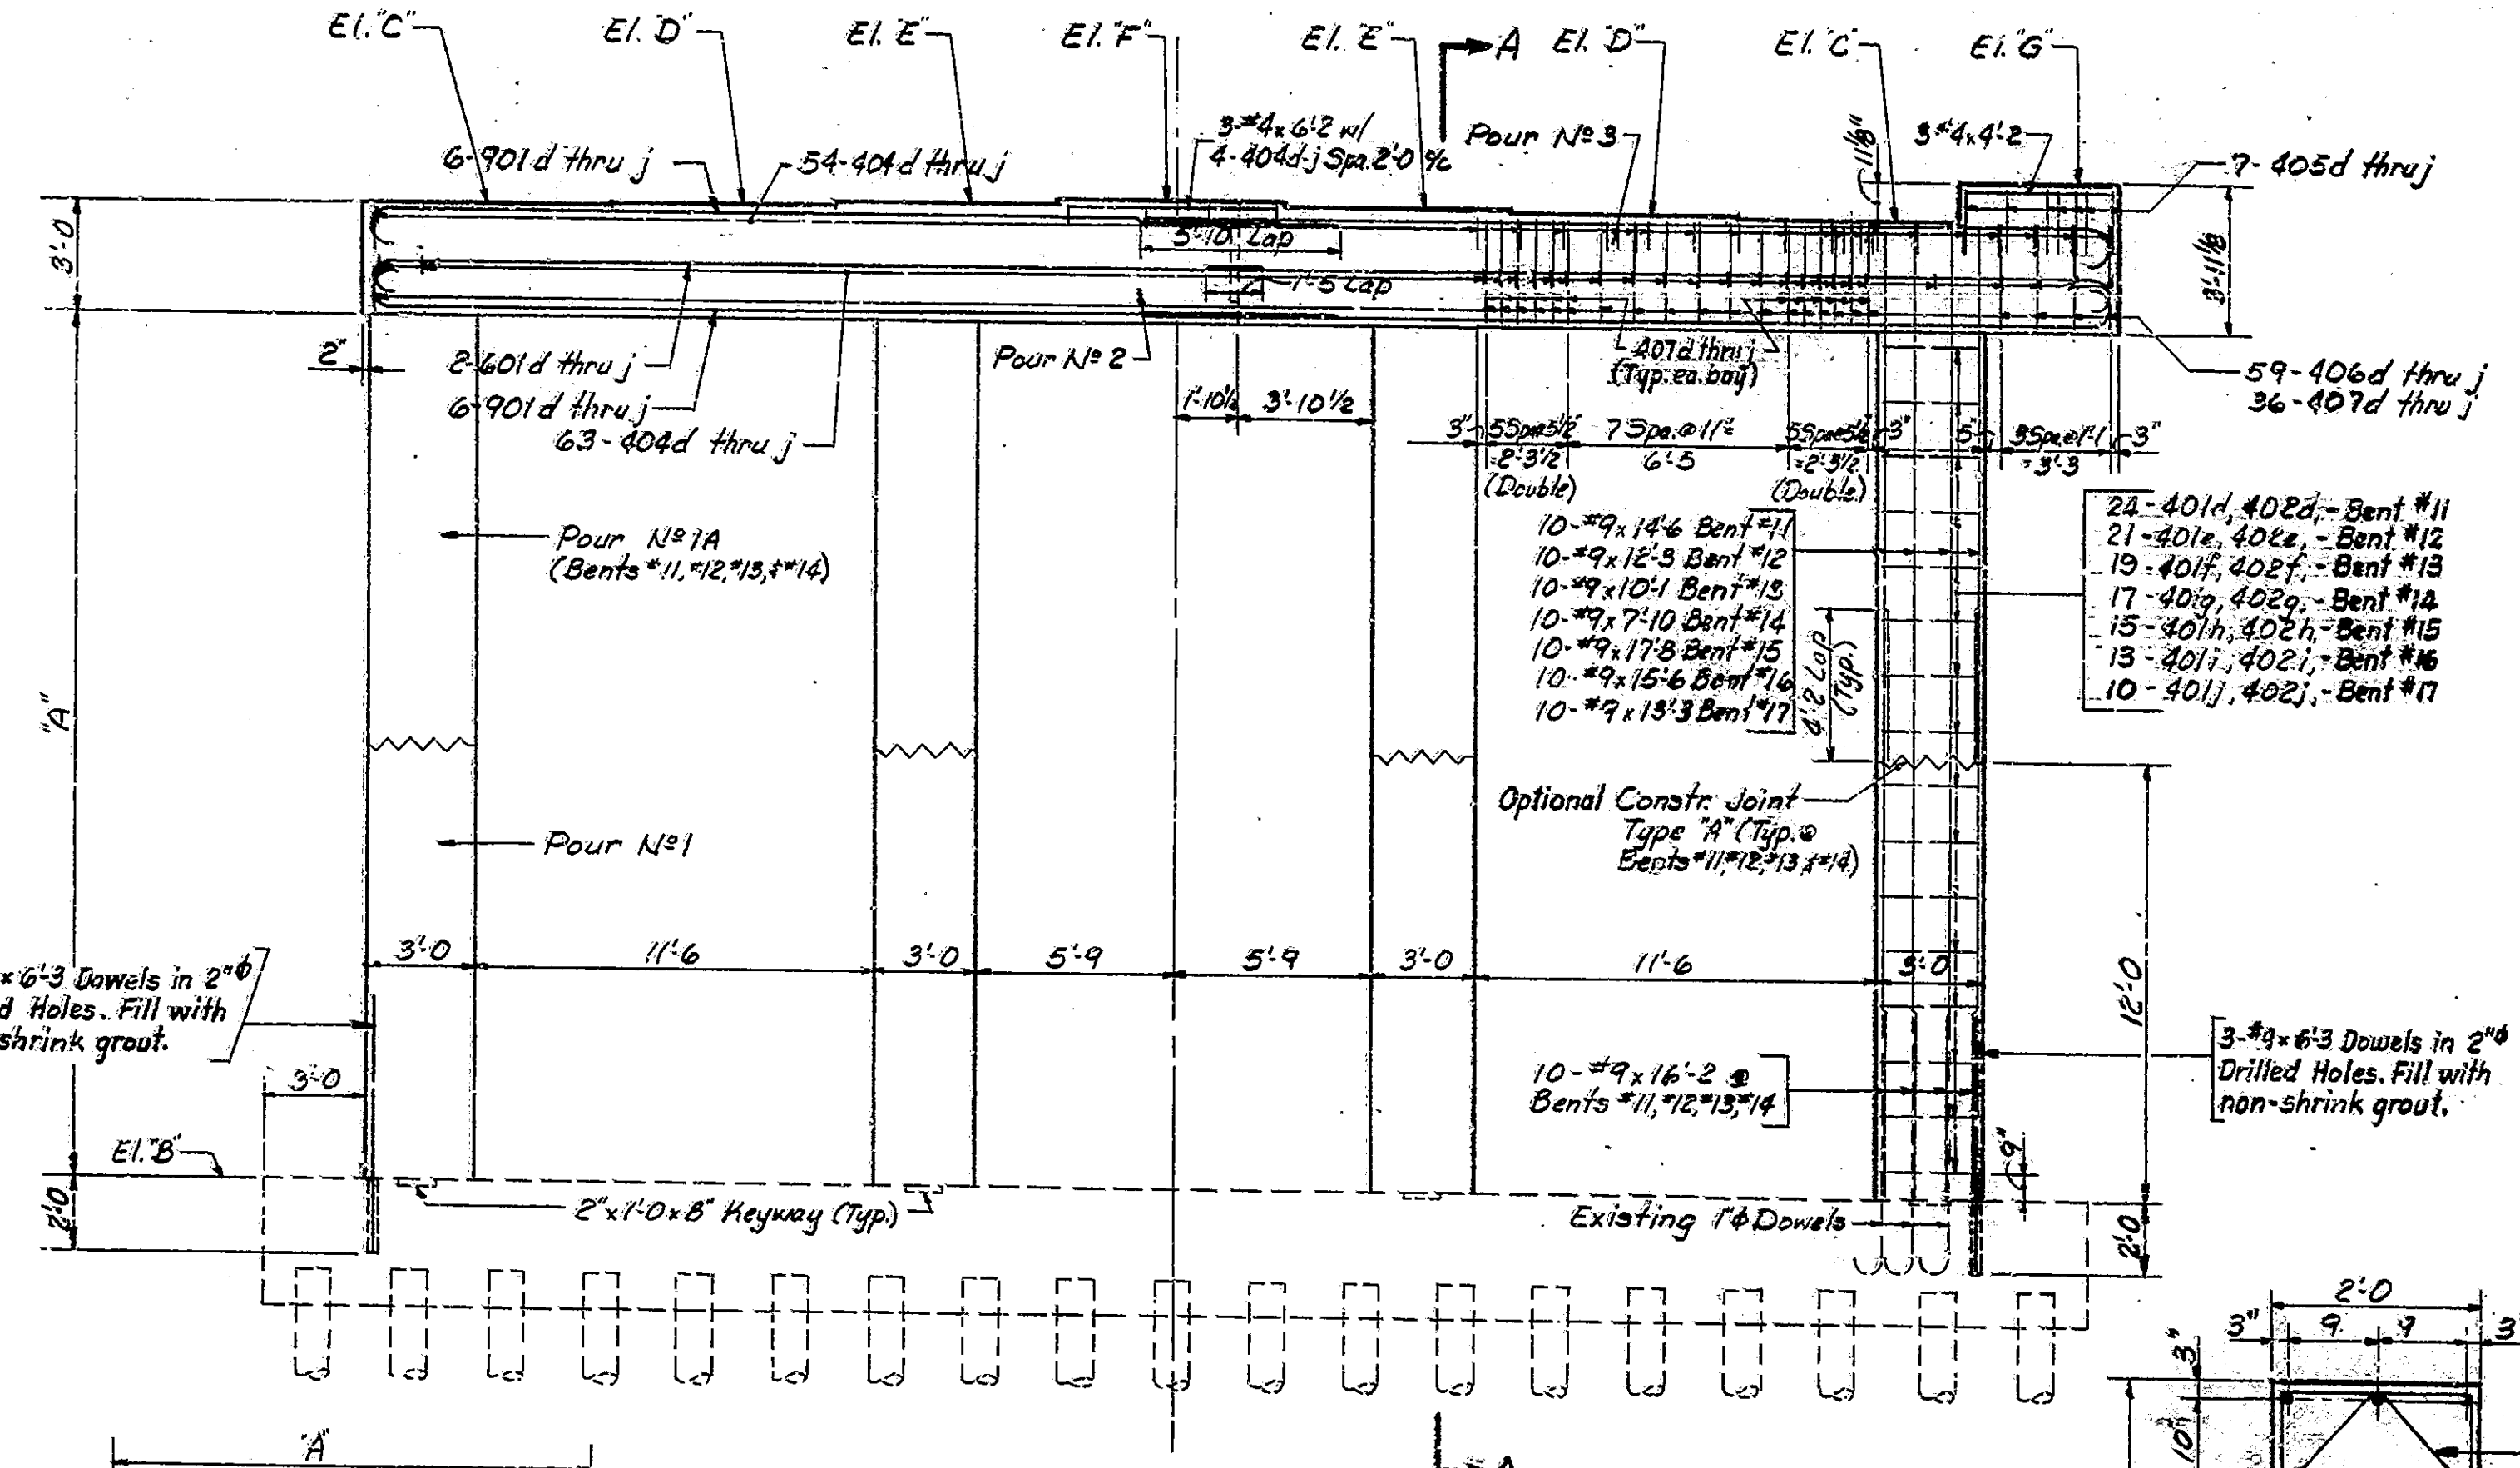 El. "C"
El. "D"
El. "E"
El. "F"
El. "E"
A
El. "D"
El. "C"
El. "G"
6-901d thru j
54-404d thru j
3-#4x6'-2 w/
4-404d-j Spa. 2'-0 %
Pour Nº 3
11⅛"
3#4x4'-2
7-405d thru j
3'-0
5'-10 Lap
1'-5 Lap
3'-11⅛
2"
2-601d thru j
6-901d thru j
63-404d thru j
Pour Nº 2
407d thru j
(Typ. ea. bay)
59-406d thru j
36-407d thru j
1'-10½
3'-10½
3"
5Spa@5½"
=2'-3½
(Double)
7 Spa.@11"=
6'-5
5Spa@5½
=2'-3½
(Double)
3"
5"
3Spa@1'-1
=3'-3
3"
Pour Nº 1A
(Bents #11, #12, #13, & #14)
10-#9x14'-6 Bent #11
10-#9x12'-3 Bent #12
10-#9x10'-1 Bent #13
10-#9x7'-10 Bent #14
10-#9x17'-8 Bent #15
10-#9x15'-6 Bent #16
10-#9x13'-3 Bent #17
4'-2 Lap
(Typ.)
24-401d, 402d,- Bent #11
21-401e, 402e,- Bent #12
19-401f, 402f,- Bent #13
17-401g, 402g,- Bent #14
15-401h, 402h,- Bent #15
13-401i, 402i,- Bent #16
10-401j, 402j,- Bent #17
"A"
Optional Constr. Joint
Type "A" (Typ. @
Bents #11, #12, #13, & #14)
Pour Nº 1
3'-0
11'-6
3'-0
5'-9
5'-9
3'-0
11'-6
3'-0
12'-0
x 6'-3 Dowels in 2"ϕ
d Holes. Fill with
shrink grout.
3'-0
10-#9x16'-2 @
Bents #11, #12, #13, #14
3-#9x6'-3 Dowels in 2"ϕ
Drilled Holes. Fill with
non-shrink grout.
El. "B"
9"
2'-0
2"x1'-0x8" Keyway (Typ.)
Existing 1"ϕ Dowels
2'-0
2'-0
3"
9
9
3
3"
10"
"A"
A